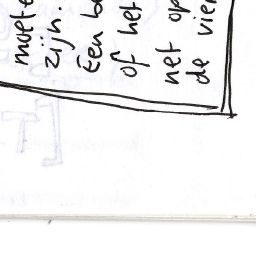 moet
zijn.
Een
of het
net op
de vier